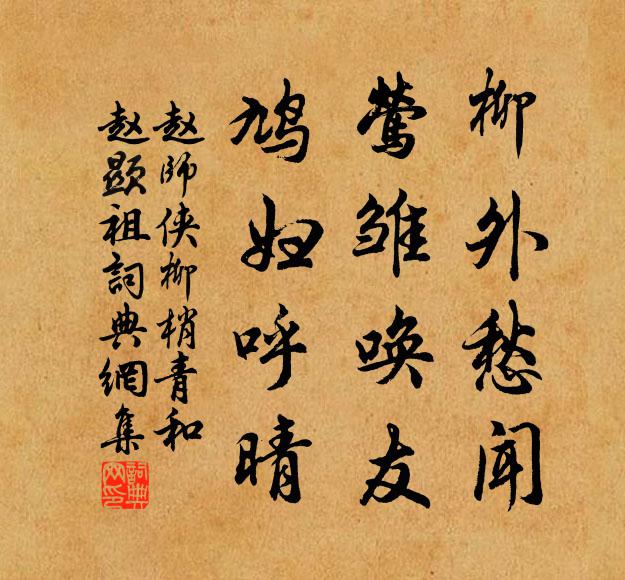 柳外愁闻
莺雏唤友
鸠妇呼晴
赵师侠柳梢青和
赵显祖词典网集
词典
网印